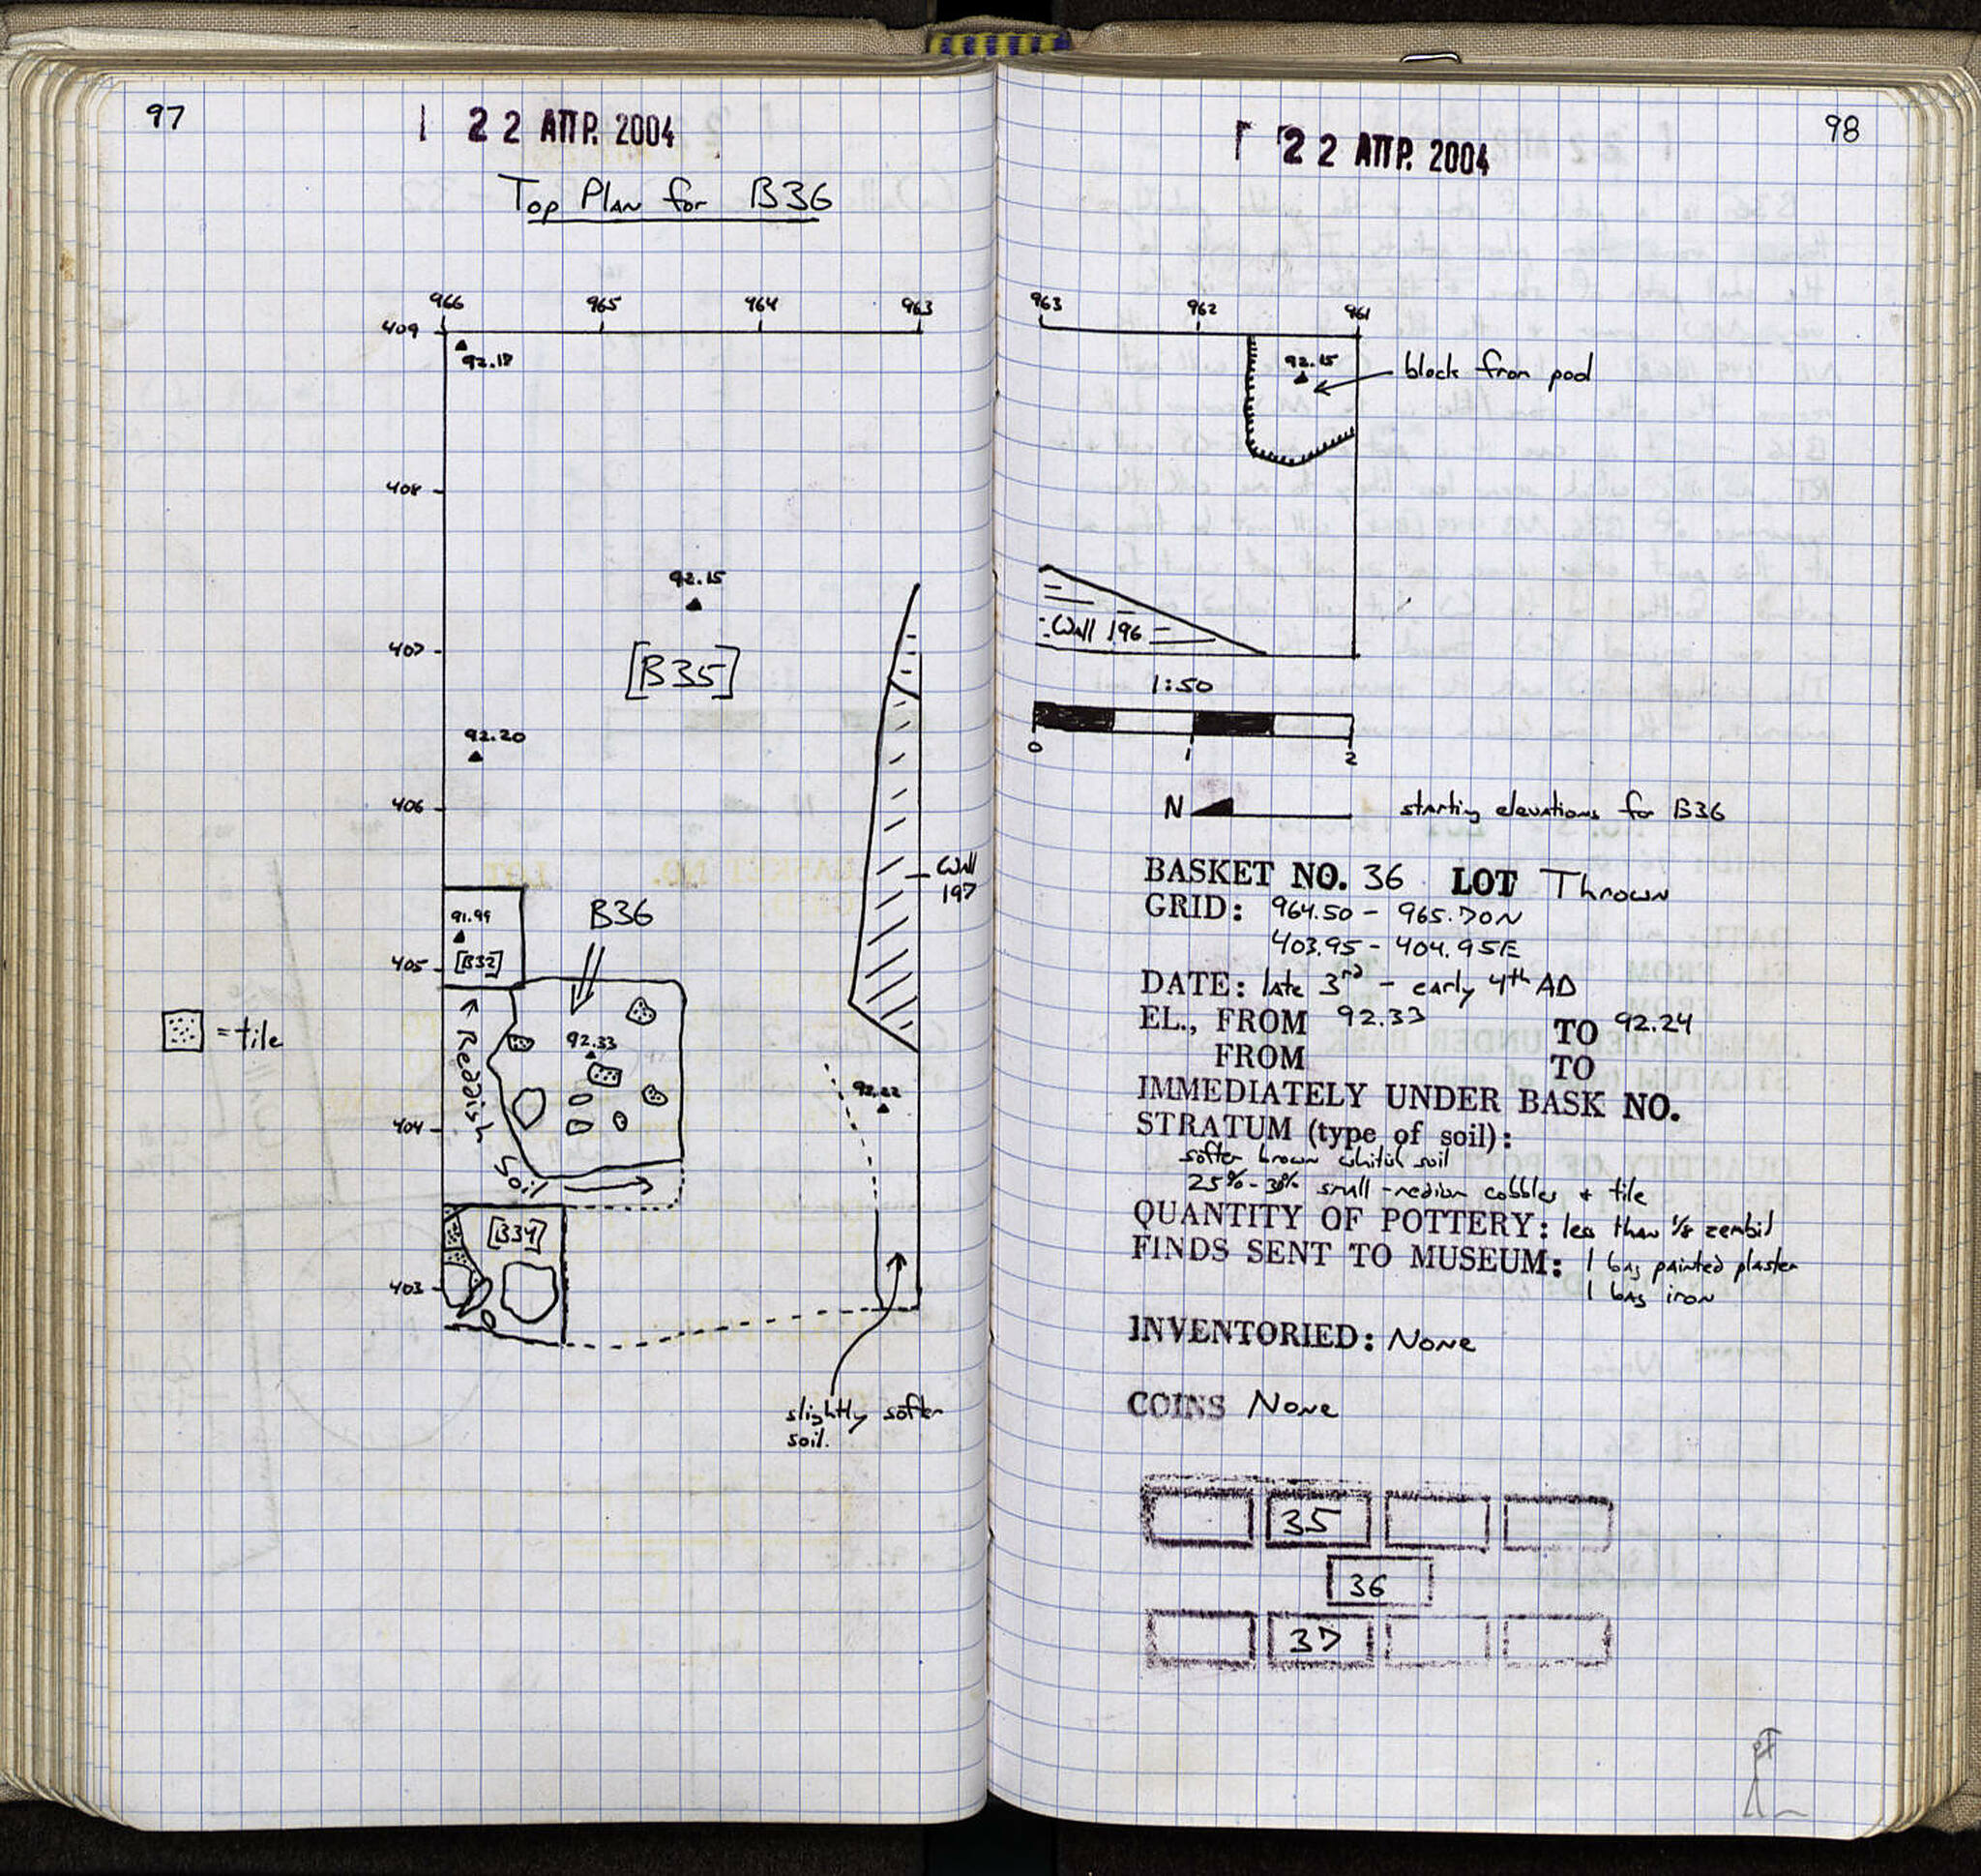 97
22 ΑΠΡ. 2004
Top Plan for B36
966 965 964 963
409
92.18
408
92.15
407
[B35]
92.20
406
Wall
197
91.99
B36
405
[B32]
= tile
Reddish
Soil
92.33
92.22
404
[B34]
403
slightly softer
soil.
98
22 ΑΠΡ. 2004
963 962 961
92.15
block from pool
Wall 196
1:50
0 1 2
N
starting elevations for B36
BASKET NO. 36 LOT Thrown
GRID: 964.50 - 965.70N
403.95 - 404.95E
DATE: late 3rd - early 4th AD
EL., FROM 92.33 TO 92.24
FROM TO
IMMEDIATELY UNDER BASK NO.
STRATUM (type of soil):
softer brown whitish soil
25% - 30% small-medium cobbles + tile
QUANTITY OF POTTERY: less than 1/8 zembil
FINDS SENT TO MUSEUM: 1 bag painted plaster
1 bag iron
INVENTORIED: None
COINS None
35
36
37